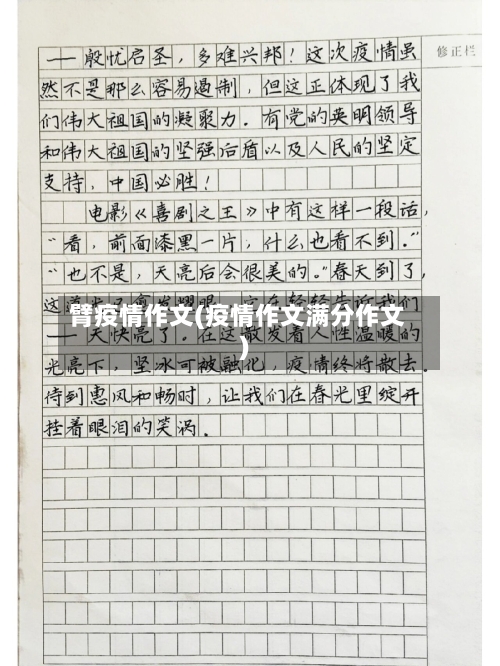 修正栏
——殷忧启圣，多难兴邦！这次疫情虽
然不是那么容易遏制，但这正体现了我
们伟大祖国的凝聚力。有党的英明领导
和伟大祖国的坚强后盾以及人民的坚定
支持，中国必胜！
电影《喜剧之王》中有这样一段话，
“看，前面漆黑一片，什么也看不到。”
“也不是，天亮后会很美的。”春天到了，
这道光
我们
臂疫情作文(疫情作文满分作文
)
——天快亮了。在这散发着人性温暖的
光亮下，坚冰可被融化，疫情终将散去。
待到惠风和畅时，让我们在春光里绽开
挂着眼泪的笑涡．